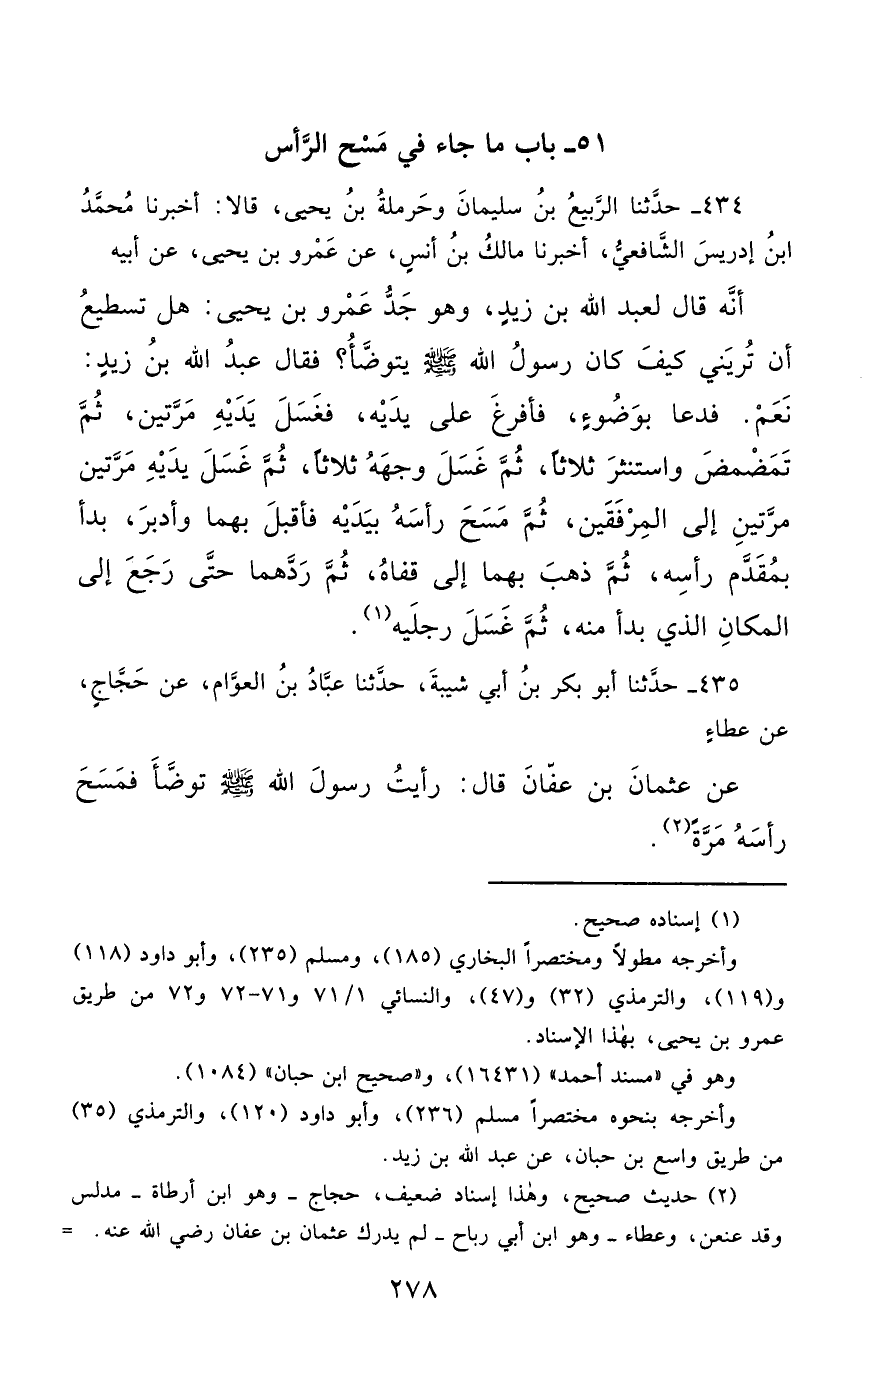 ٥١ـ باب ما جاء في مَسْح الرَّأس
٤٣٤ـ حدَّثنا الرَّبيعُ بنُ سليمانَ وحَرملةُ بنُ يحيى، قالا: أخبرنا مُحمَّدُ
ابنُ إدريسَ الشَّافعيُّ، أخبرنا مالكُ بنُ أنسٍ، عن عَمْرو بن يحيى، عن أبيه
أنَّه قال لعبد الله بن زيدٍ، وهو جَدُّ عَمْرو بن يحيى: هل تسطيعُ
أن تُريَني كيفَ كان رسولُ الله ﷺ يتوضَّأُ؟ فقال عبدُ الله بنُ زيدٍ:
نَعَمْ. فدعا بوَضُوءٍ، فأفرغَ على يديْه، فغَسَلَ يَدَيْهِ مَرَّتين، ثُمَّ
تَمَضْمضَ واستنثرَ ثلاثاً، ثُمَّ غَسَلَ وجهَهُ ثلاثاً، ثُمَّ غَسَلَ يديْهِ مَرَّتين
مرَّتينِ إلى المِرْفَقَين، ثُمَّ مَسَحَ رأسَهُ بيَدَيْه فأقبلَ بهما وأدبرَ، بدأ
بمُقَدَّم رأسِه، ثُمَّ ذهبَ بهما إلى قفاهُ، ثُمَّ رَدَّهما حتَّى رَجَعَ إلى
المكانِ الذي بدأ منه، ثُمَّ غَسَلَ رجلَيه(١).
٤٣٥ـ حدَّثنا أبو بكر بنُ أبي شيبةَ، حدَّثنا عبَّادُ بنُ العوَّام، عن حَجَّاجٍ،
عن عطاءٍ
عن عثمانَ بن عفّانَ قال: رأيتُ رسولَ الله ﷺ توضَّأَ فمَسَحَ
رأسَهُ مَرَّةً(٢).
(١) إسناده صحيح.
وأخرجه مطولاً ومختصراً البخاري (١٨٥)، ومسلم (٢٣٥)، وأبو داود (١١٨)
و(١١٩)، والترمذي (٣٢) و(٤٧)، والنسائي ١/ ٧١ و٧١-٧٢ و٧٢ من طريق
عمرو بن يحيى، بهٰذا الإسناد.
وهو في «مسند أحمد» (١٦٤٣١)، و«صحيح ابن حبان» (١٠٨٤).
وأخرجه بنحوه مختصراً مسلم (٢٣٦)، وأبو داود (١٢٠)، والترمذي (٣٥)
من طريق واسع بن حبان، عن عبد الله بن زيد.
(٢) حديث صحيح، وهٰذا إسناد ضعيف، حجاج ـ وهو ابن أرطاة ـ مدلس
وقد عنعن، وعطاء ـ وهو ابن أبي رباح ـ لم يدرك عثمان بن عفان رضي الله عنه. =
٢٧٨